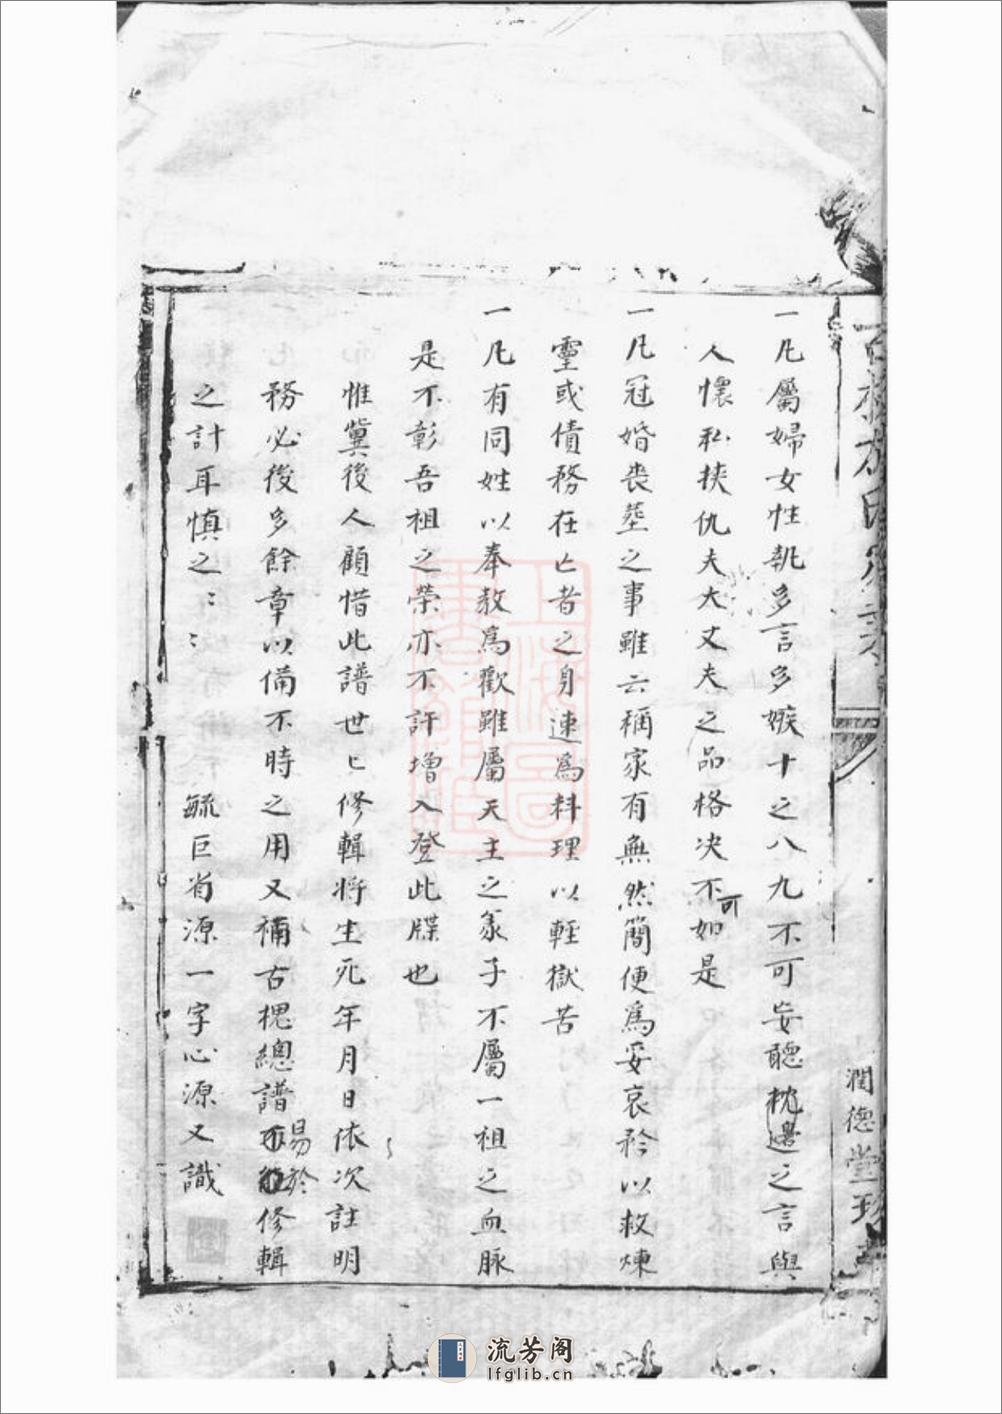 一凡屬婦女性執多言多嫉十之八九不可妄聽枕邊之言與
人懷私挾仇夫大丈夫之品格決不可如是
一凡冠婚喪塟之事雖云稱家有無然簡便爲妥哀矜以救煉
靈或債務在亡者之身速爲料理以輕獄苦
一凡有同姓以奉教爲歡雖屬天主之豙子不屬一祖之血脉
是不彰吾祖之榮亦不許增入登此牒也
惟冀後人顧惜此譜世〻修輯将生死年月日依次註明
務必後多餘章以備不時之用又補古槐總譜易於修輯
之計耳慎之〻〻
毓巨省源一字心源又識
潤德堂
上海圖書館藏
流芳阁
lfglib.cn